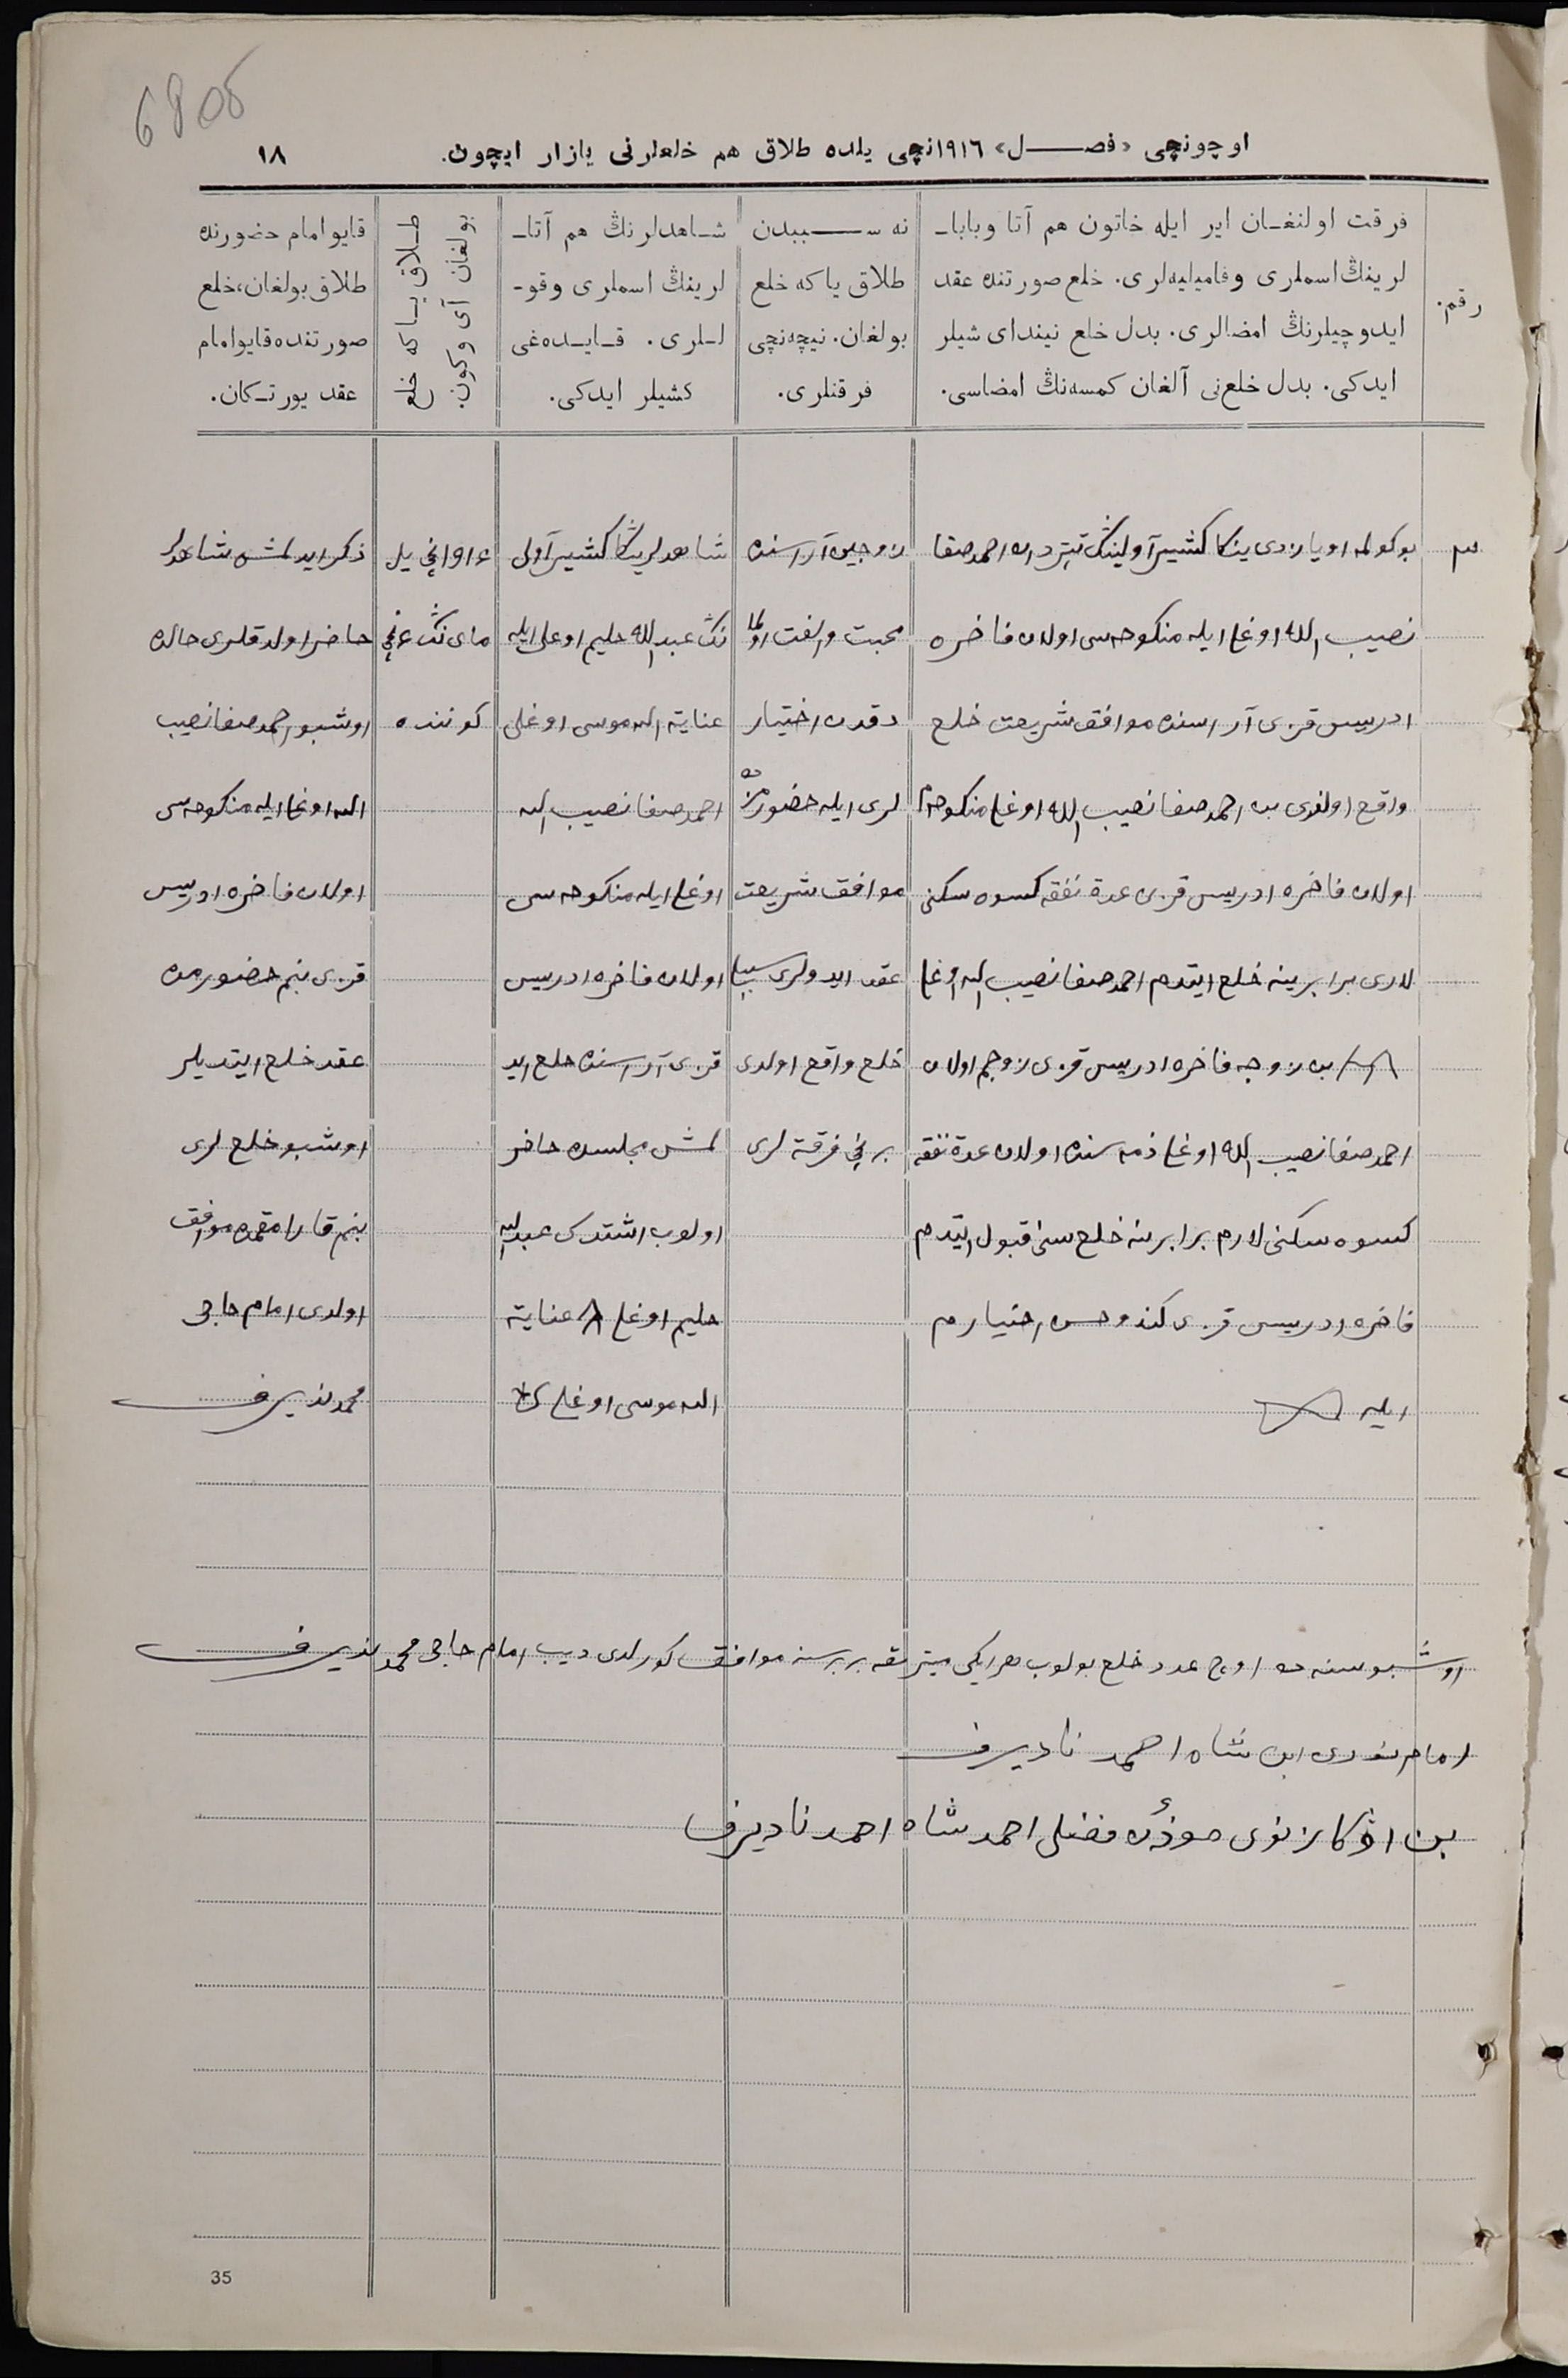 6805
اوچونچی «فصل» ١٩١٦نچی يلده طلاق هم خلعلرنی يازار ايچون.
١٨
رقم.
فرقت اولنغان اير ايله خاتون هم آتا وبابا-
لرينڭ اسملری وفاميليه‌لری. خلع صورتنده عقد
ايدوچيلرنڭ امضالری. بدل خلع نيندای شيلر
ايدکی. بدل خلع‌نی آلغان کمسه‌نڭ امضاسی.
نه سببدن
طلاق ياکه خلع
بولغان. نيچه‌نچی
فرقتلری.
شاهدلرنڭ هم آتا-
لرينڭ اسملری وقو-
للری. قايده‌غی
کشيلر ايدکی.
طلاق ياکه خلع
بولغان آی وکون.
قايو امام حضورنده
طلاق بولغان، خلع
صورتنده قايو امام
عقد يورتکان.
٣
احمدصفا
نصيب الله اوغلی ايله منکوحه‌سی اولان فاخره
ادريس قزی آراسنده موافق شريعت خلع
واقع اولندی بن احمدصفا نصيب الله اوغلی منکوحه‌م
اولان فاخره ادريس قزی عدة نفقه کسوه سکنی
لاری برابرينه خلع ايتدم احمدصفا نصيب الله اوغلی
بن زوجه فاخره ادريس قزی زوجم اولان
احمدصفا نصيب الله اوغلی ذمه سنده اولان عدة نفقه
کسوه سکنی لارم برابرينه خلع سنی قبول ايتدم
فاخره ادريس قزی کندو حسن اختيارم
ايله
زوجين آراسنده
محبت والفت اولما
دقدن اختيار
لری ايله حضورمزده
موافق شريعت
عقد ايدولری سببلی
خلع واقع اولدی
برنچی فرقة لری
شاهدلری ينکا کشير آولی
نڭ عبدالله حليم اوغلی ايله
عناية الله موسی اوغلی
احمدصفا نصيب الله
اوغلی ايله منکوحه سی
اولان فاخره ادريس
قزی آراسنده خلع ايد
لمش مجلسده حاضر
اولوب اشتدک عبدالله
حليم اوغلی عناية
الله موسی اوغلی
١٩١٦نچی يل
مای نڭ ٤نچی
کوننده
ذکر ايدلمش شاهدلر
حاضر اولدقلری حالده
اوشبو احمدصفا نصيب
الله اوغلی ايله منکوحه سی
اولان فاخره ادريس
قزی بنم حضورمده
عقد خلع ايتديلر
اوشبو خلع لری
اولدی امام حاجی
محمدنذيرف
اوشبو سنه ده اوچ عدد خلع بولوب هر ايکی ميتريقه بربرسنه موافق کورلدی ديب امام حاجی محمدنذيرف
امام نوری ابن شاه احمد ناديرف
مؤذن فضلی احمد شاه احمد ناديرف
35